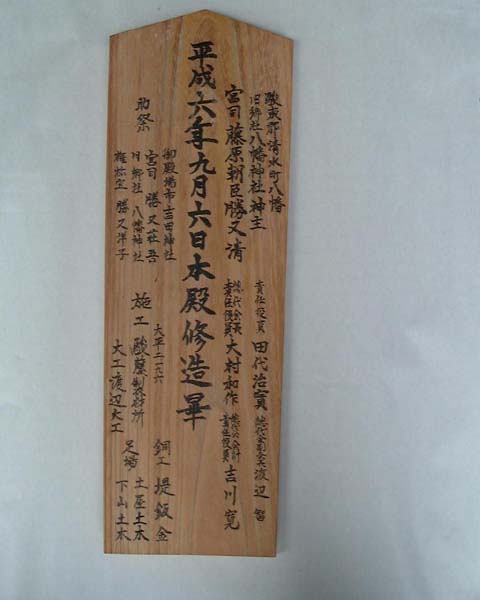 駿東郡清水町八幡
旧郷社八幡神社神主
宮司 藤原朝臣勝又清
責任役員 田代治實 総代会副会長 渡辺
総代会長
責任役員 大村和作
総代会会計
責任役員 吉川寛
平成六年九月六日本殿修造畢
助祭
御殿場市吉田神社
宮司 勝又荘吾
旧郷社 八幡神社
権祢宜 勝又洋子
大平二一六六
施工 駿藤製材所
大工 渡辺大工
銅工 堤鈑金
足場
土屋土木
下山土木